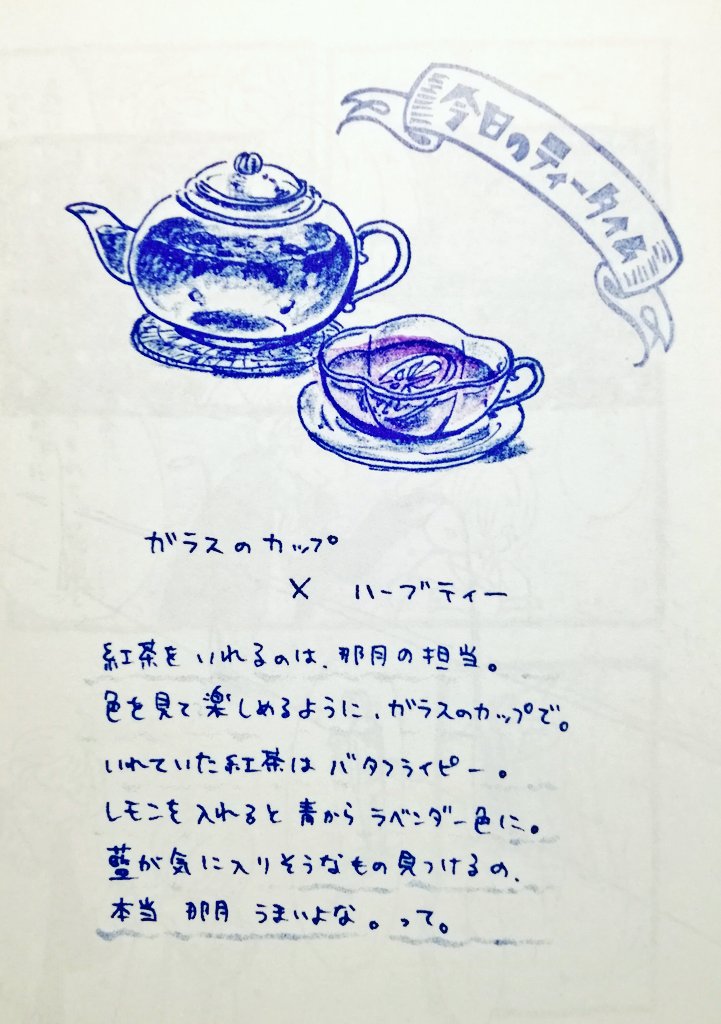 今日のティータイム
ガラスのカップ
× ハーブティー
紅茶をいれるのは、那月の担当。
色を見て楽しめるように、ガラスのカップで。
いれていた紅茶はバタフライピー。
レモンを入れると青からラベンダー色に。
藍が気に入りそうなもの見つけるの、
本当 那月 うまいよな。って。